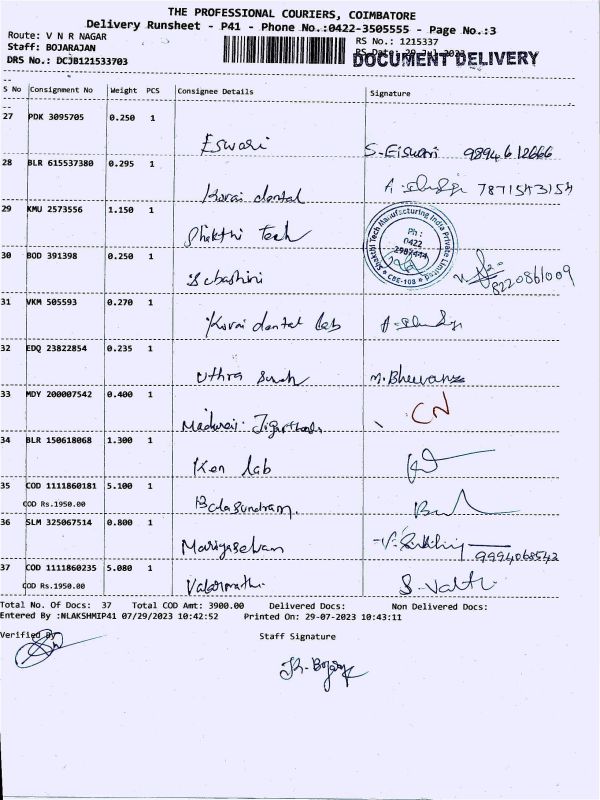 THE PROFESSIONAL COURIERS, COIMBATORE
Delivery Runsheet - P41 - Phone No.:0422-3505555 - Page No.:3
Route: V N R NAGAR
RS No.: 1215337
Staff: BOJARAJAN
RS Date: 29 Jul 2023
DOCUMENT DELIVERY
DRS No.: DCJB121533703
S No Consignment No Weight PCS Consignee Details Signature
27 PDK 3095705 0.250 1
Eswari S. Eiswari 9894612666
28 BLR 615537380 0.295 1
Korai dental 7871543154
29 KMU 2573556 1.150 1
Shakthi Tech
Shakthi Tech Manufacturing India Private Limited
Ph :
0422
2987444
CBE-108
30 BOD 391398 0.250 1
Sebashini 8220861009
31 VKM 505593 0.270 1
Korai dental lab
32 EDQ 23822854 0.235 1
Uthra M. Bhuvana
33 MDY 200007542 0.400 1
Madurai Jigarthanda CN
34 BLR 150618068 1.300 1
Ken lab
35 COD 1111860181 5.100 1
COD Rs.1950.00
Balasundram.
36 SLM 325067514 0.800 1
Mariyaselvan 9994068542
37 COD 1111860235 5.080 1
COD Rs.1950.00
Valarmathi S. Valthi
Total No. Of Docs: 37 Total COD Amt: 3900.00 Delivered Docs: Non Delivered Docs:
Entered By :NLAKSHMIP41 07/29/2023 10:42:52 Printed On: 29-07-2023 10:43:11
Verified By
Staff Signature